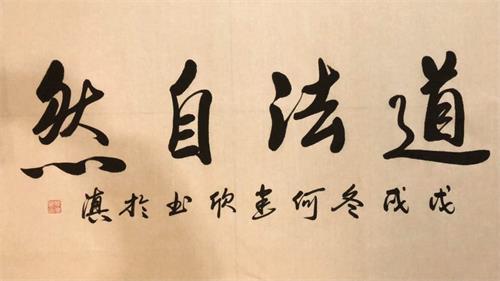 道法自然
戊戌冬何建欣书於滇